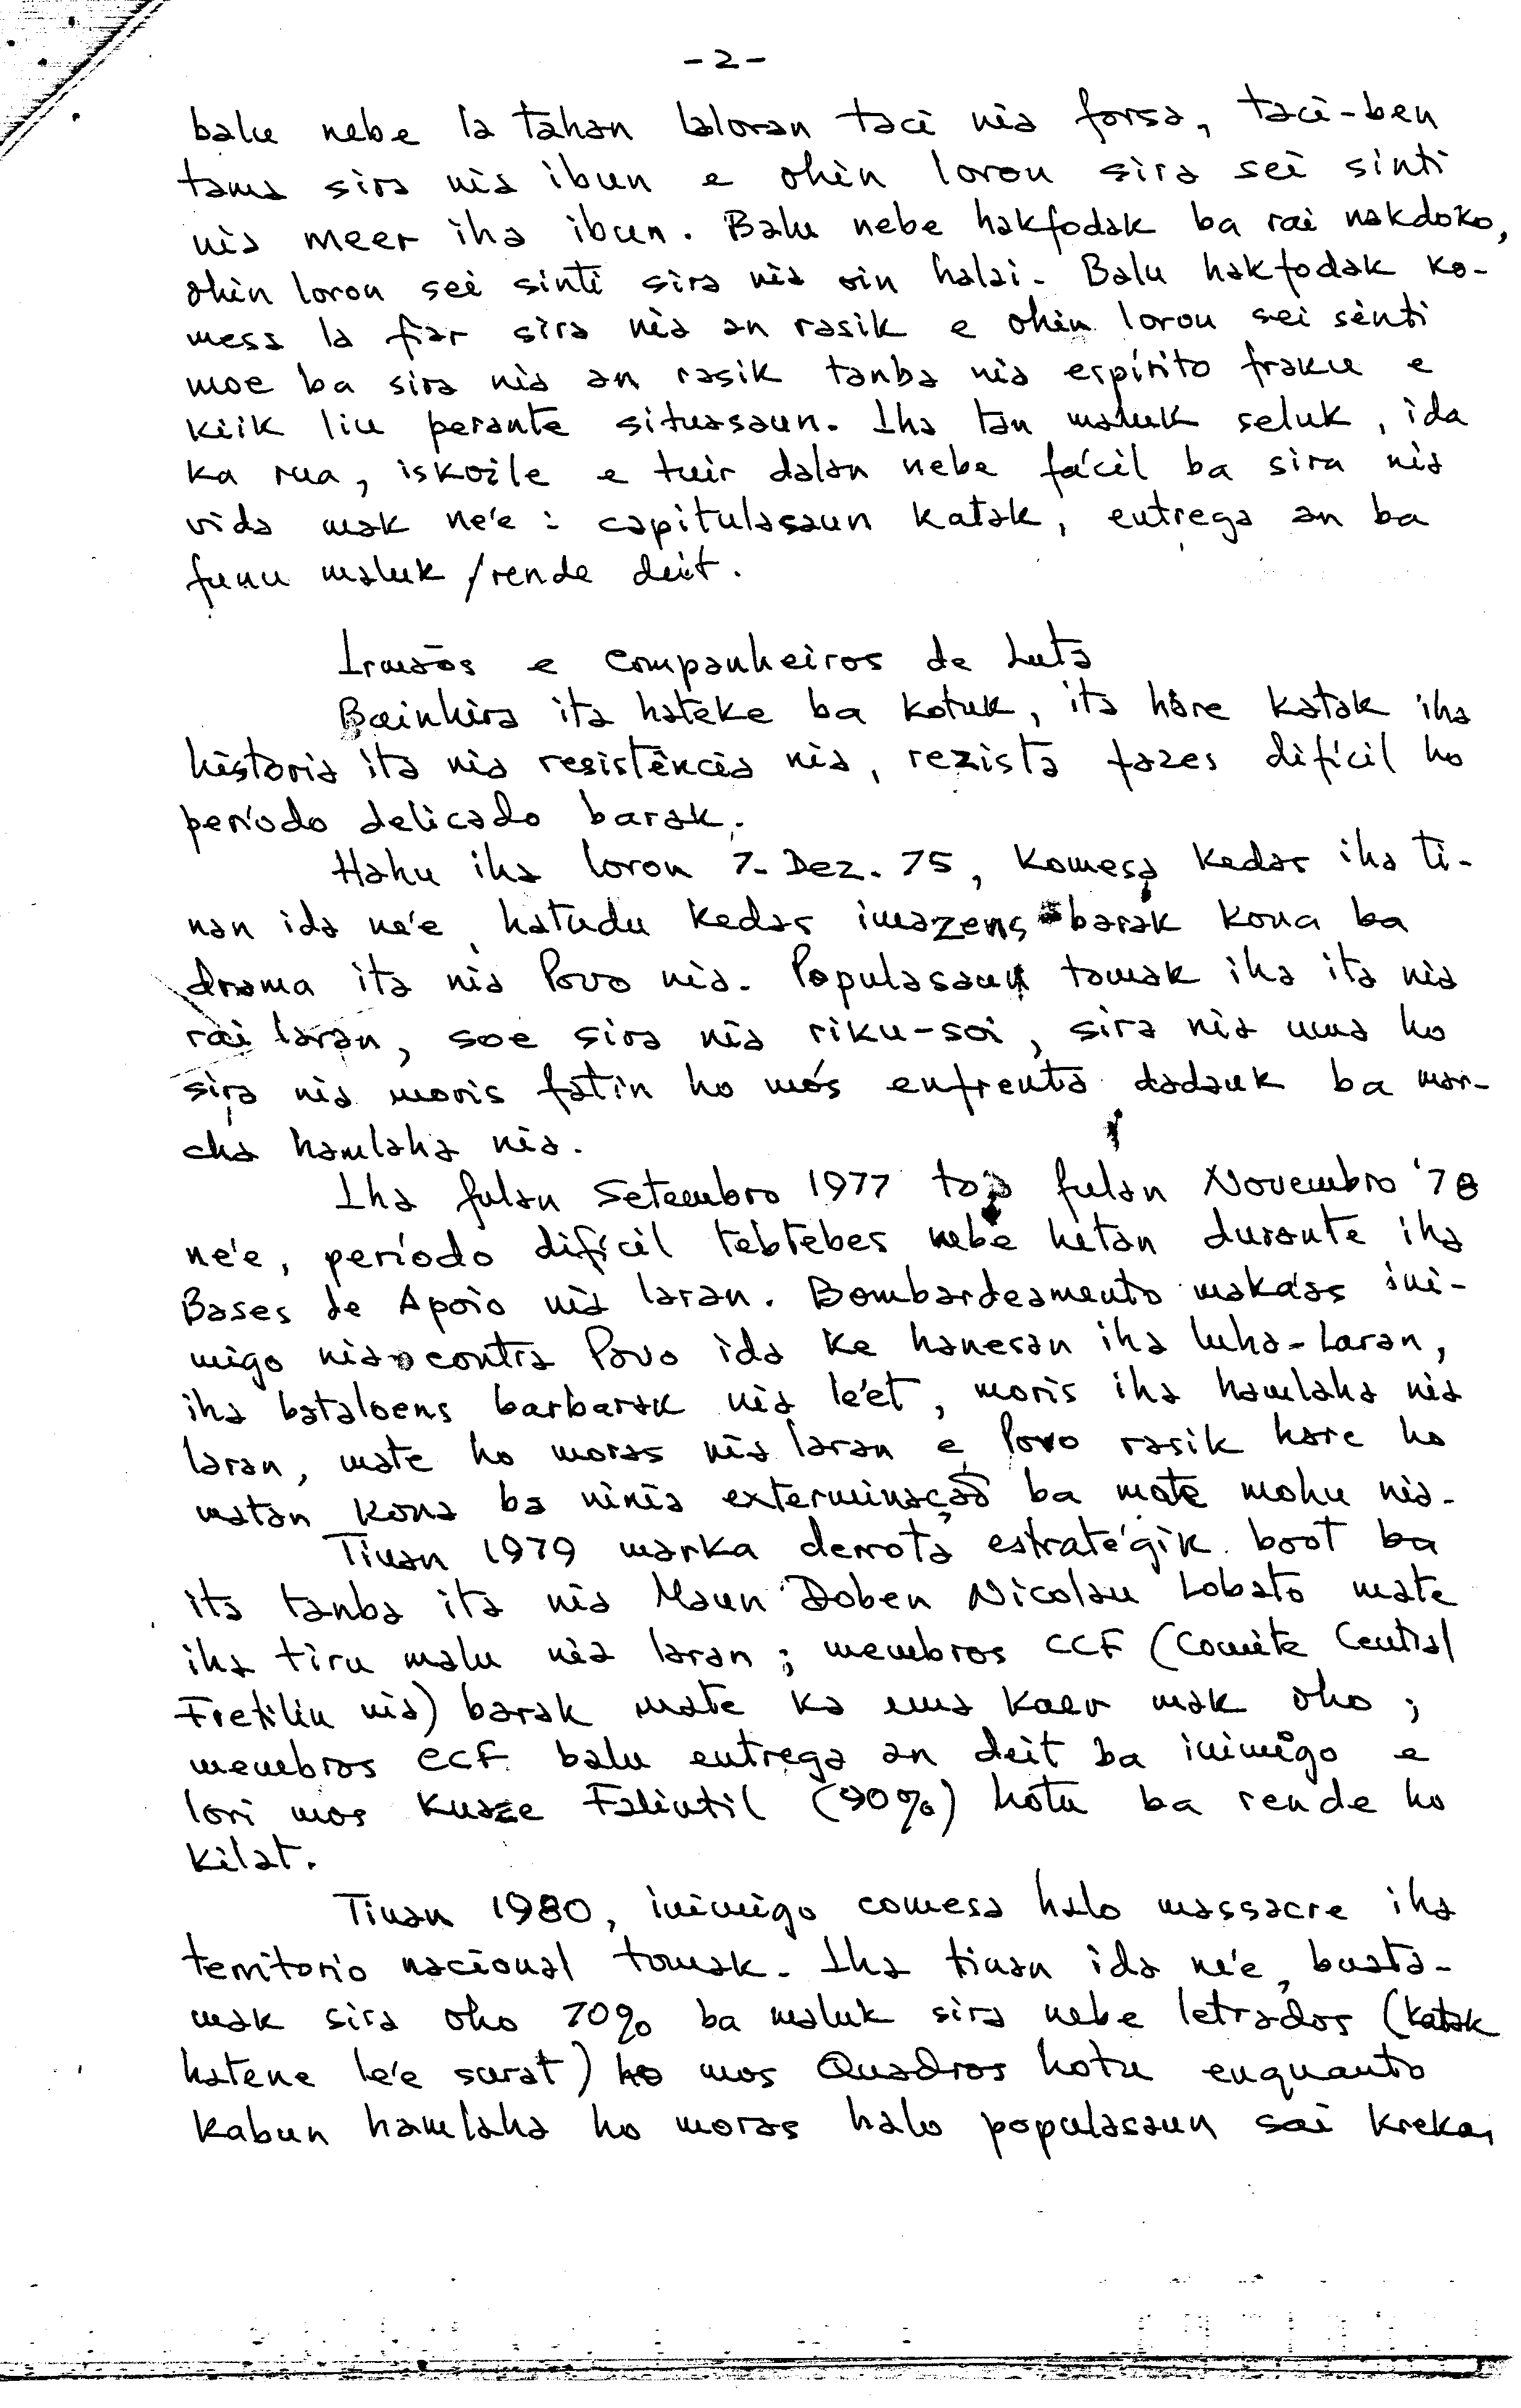 - 2 -
balu nebe la tahan laloran taci nia forsa, taci-ben
tama sira nia ibun e ohin loron sira sei sinti
nia meer iha ibun. Balu nebe hakfodak ba rai nakdoko,
ohin loron sei sinti sira nia oin halai. Balu hakfodak ko-
mesa la fiar sira nia an rasik e ohin loron sei sinti
moe ba sira nia an rasik tanba nia espírito fraku e
kiik liu perante situasaun. Iha tan maluk seluk, ida
ka rua, iskoile e tuir dalan nebe fácil ba sira nia
vida mak ne'e : capitulasaun katak, entrega an ba
funu maluk /rende deit.
Irmãos e companheiros de Luta
Bainhira ita hateke ba kotuk, ita hare katak iha
historia ita nia resistência nia, rezista fazes difícil ho
período delicado barak.
Hahu iha loron 7. Dez. 75, komesa kedas iha ti-
nan ida ne'e, hatudu kedas imazens barak kona ba
drama ita nia Povo nia. Populasaun tomak iha ita nia
rai laran, soe sira nia riku-soi, sira nia uma ho
sira nia moris fatin ho mós enfrenta dadauk ba mar-
cha hamlaha nia.
Iha fulan Setembro 1977 too fulan Novembro '78
ne'e, período difícil tebtebes nebe hetan durante iha
Bases de Apoio nia laran. Bombardeamento maka'as ini-
migo nia contra Povo ida ke hanesan iha luha-laran,
iha bataloens barbarak nia le'et, moris iha hamlaha nia
laran, mate ho moras nia laran e Povo rasik hare ho
matan kona ba ninia exterminação ba mate mohu nia.
Tinan 1979 marka derrota estratégik boot ba
ita tanba ita nia Maun Doben Nicolau Lobato mate
iha tiru malu nia laran ; membros CCF (Comite Central
Fretilin nia) barak mate ka ema kaer mak oho ;
membros CCF balu entrega an deit ba inimigo e
lori mos kuaze Falintil (90%) hotu ba rende ho
kilat.
Tinan 1980, inimigo comesa halo massacre iha
territorio nacional tomak. Iha tinan ida ne'e, buata-
mak sira oho 70% ba maluk sira nebe letrados (katak
hatene le'e surat) ho mos Quadros hotu enquanto
kabun hamlaha ho moras halo populasaun sai krekas